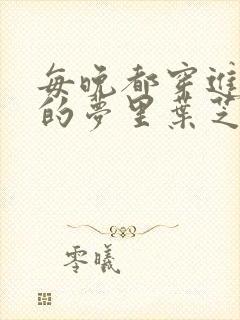 每晚都穿進
的夢里葉芝
零曦